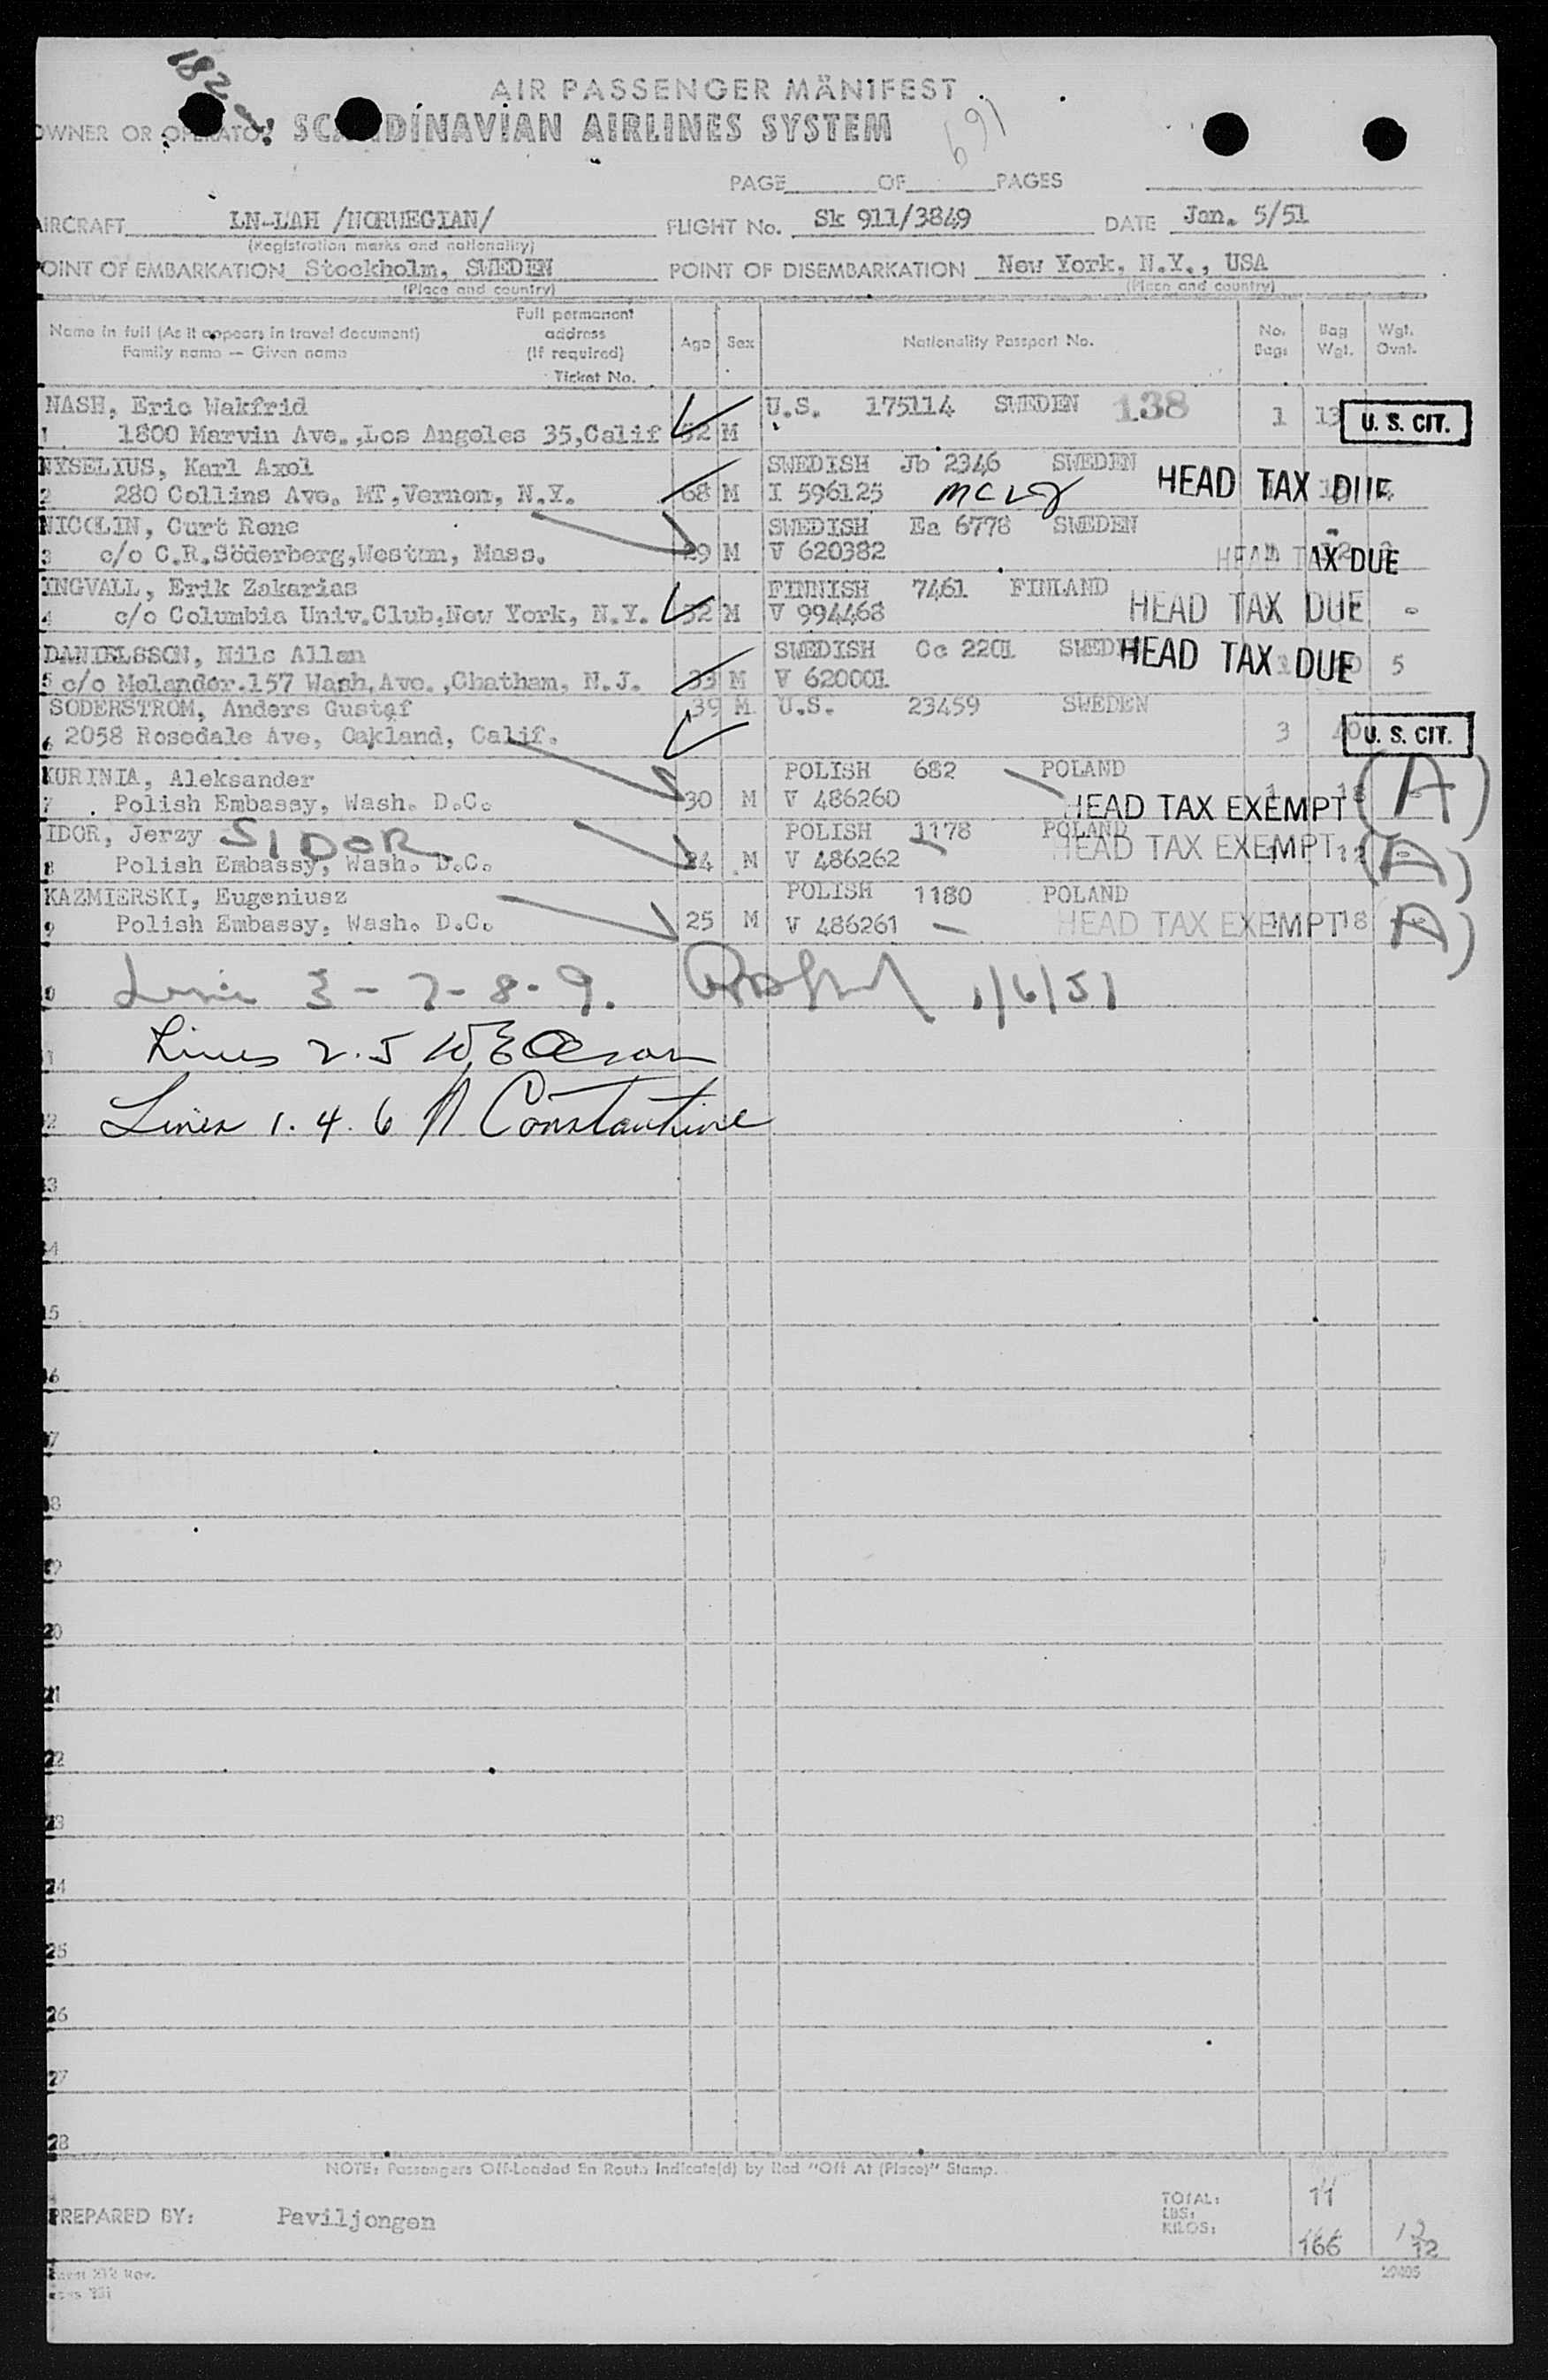 182
AIR PASSENGER MANIFEST
OWNER OR OPERATOR: SCANDINAVIAN AIRLINES SYSTEM
691
PAGE OF PAGES
AIRCRAFT LN-LAH /NORWEGIAN/ FLIGHT No. Sk 911/3849 DATE Jan. 5/51
(Registration marks and nationality)
POINT OF EMBARKATION Stockholm, SWEDEN POINT OF DISEMBARKATION New York, N.Y., USA
(Place and country) (Place and country)
Name in full (As it appears in travel document) Family name — Given name
Full permanent address (If required) Ticket No.
Age Sex Nationality Passport No. No. Bags Bag Wgt. Wgt. Ovnt.
NASH, Eric Wakfrid U.S. 175114 SWEDEN 138 1 13 U. S. CIT.
1 1800 Marvin Ave.,Los Angeles 35,Calif 52 M
NYSELIUS, Karl Axel SWEDISH Jb 2346 SWEDEN HEAD TAX DUE
2 280 Collins Ave. MT,Vernon, N.Y. 68 M I 596125
NICOLIN, Curt Rene SWEDISH Ea 6778 SWEDEN
3 c/o C.R.Söderberg,Weston, Mass. 29 M V 620382 HEAD TAX DUE
INGVALL, Erik Zakarias FINNISH 7461 FINLAND
4 c/o Columbia Univ.Club,New York, N.Y. 52 M V 994468 HEAD TAX DUE -
DANIELSSON, Nils Allan SWEDISH Cc 2201 SWEDEN HEAD TAX DUE
5 c/o Melander.157 Wash.Ave.,Chatham, N.J. 33 M V 620001 5
SODERSTROM, Anders Gustaf 39 M U.S. 23459 SWEDEN
6 2058 Rosedale Ave, Oakland, Calif. 3 U. S. CIT.
KURINIA, Aleksander POLISH 682 POLAND
7 Polish Embassy, Wash. D.C. 30 M V 486260 HEAD TAX EXEMPT (A)
IDOR, Jerzy SIDOR POLISH 1178 POLAND
8 Polish Embassy, Wash. D.C. 24 M V 486262 HEAD TAX EXEMPT (A)
KAZMIERSKI, Eugeniusz POLISH 1180 POLAND
9 Polish Embassy, Wash. D.C. 25 M V 486261 HEAD TAX EXEMPT 18 (A)
3 - 7 - 8 - 9. 1/6/51
Lines 2. 5 W E Olson
Lines 1. 4. 6 N Constantine
13
14
15
16
17
18
19
20
21
22
23
24
25
26
27
28
NOTE: Passengers Off-Loaded En Route Indicate(d) by Red "Off At (Place)" Stamp.
TOTAL: 11
LBS:
PREPARED BY: Paviljongen
KILOS: 166 12